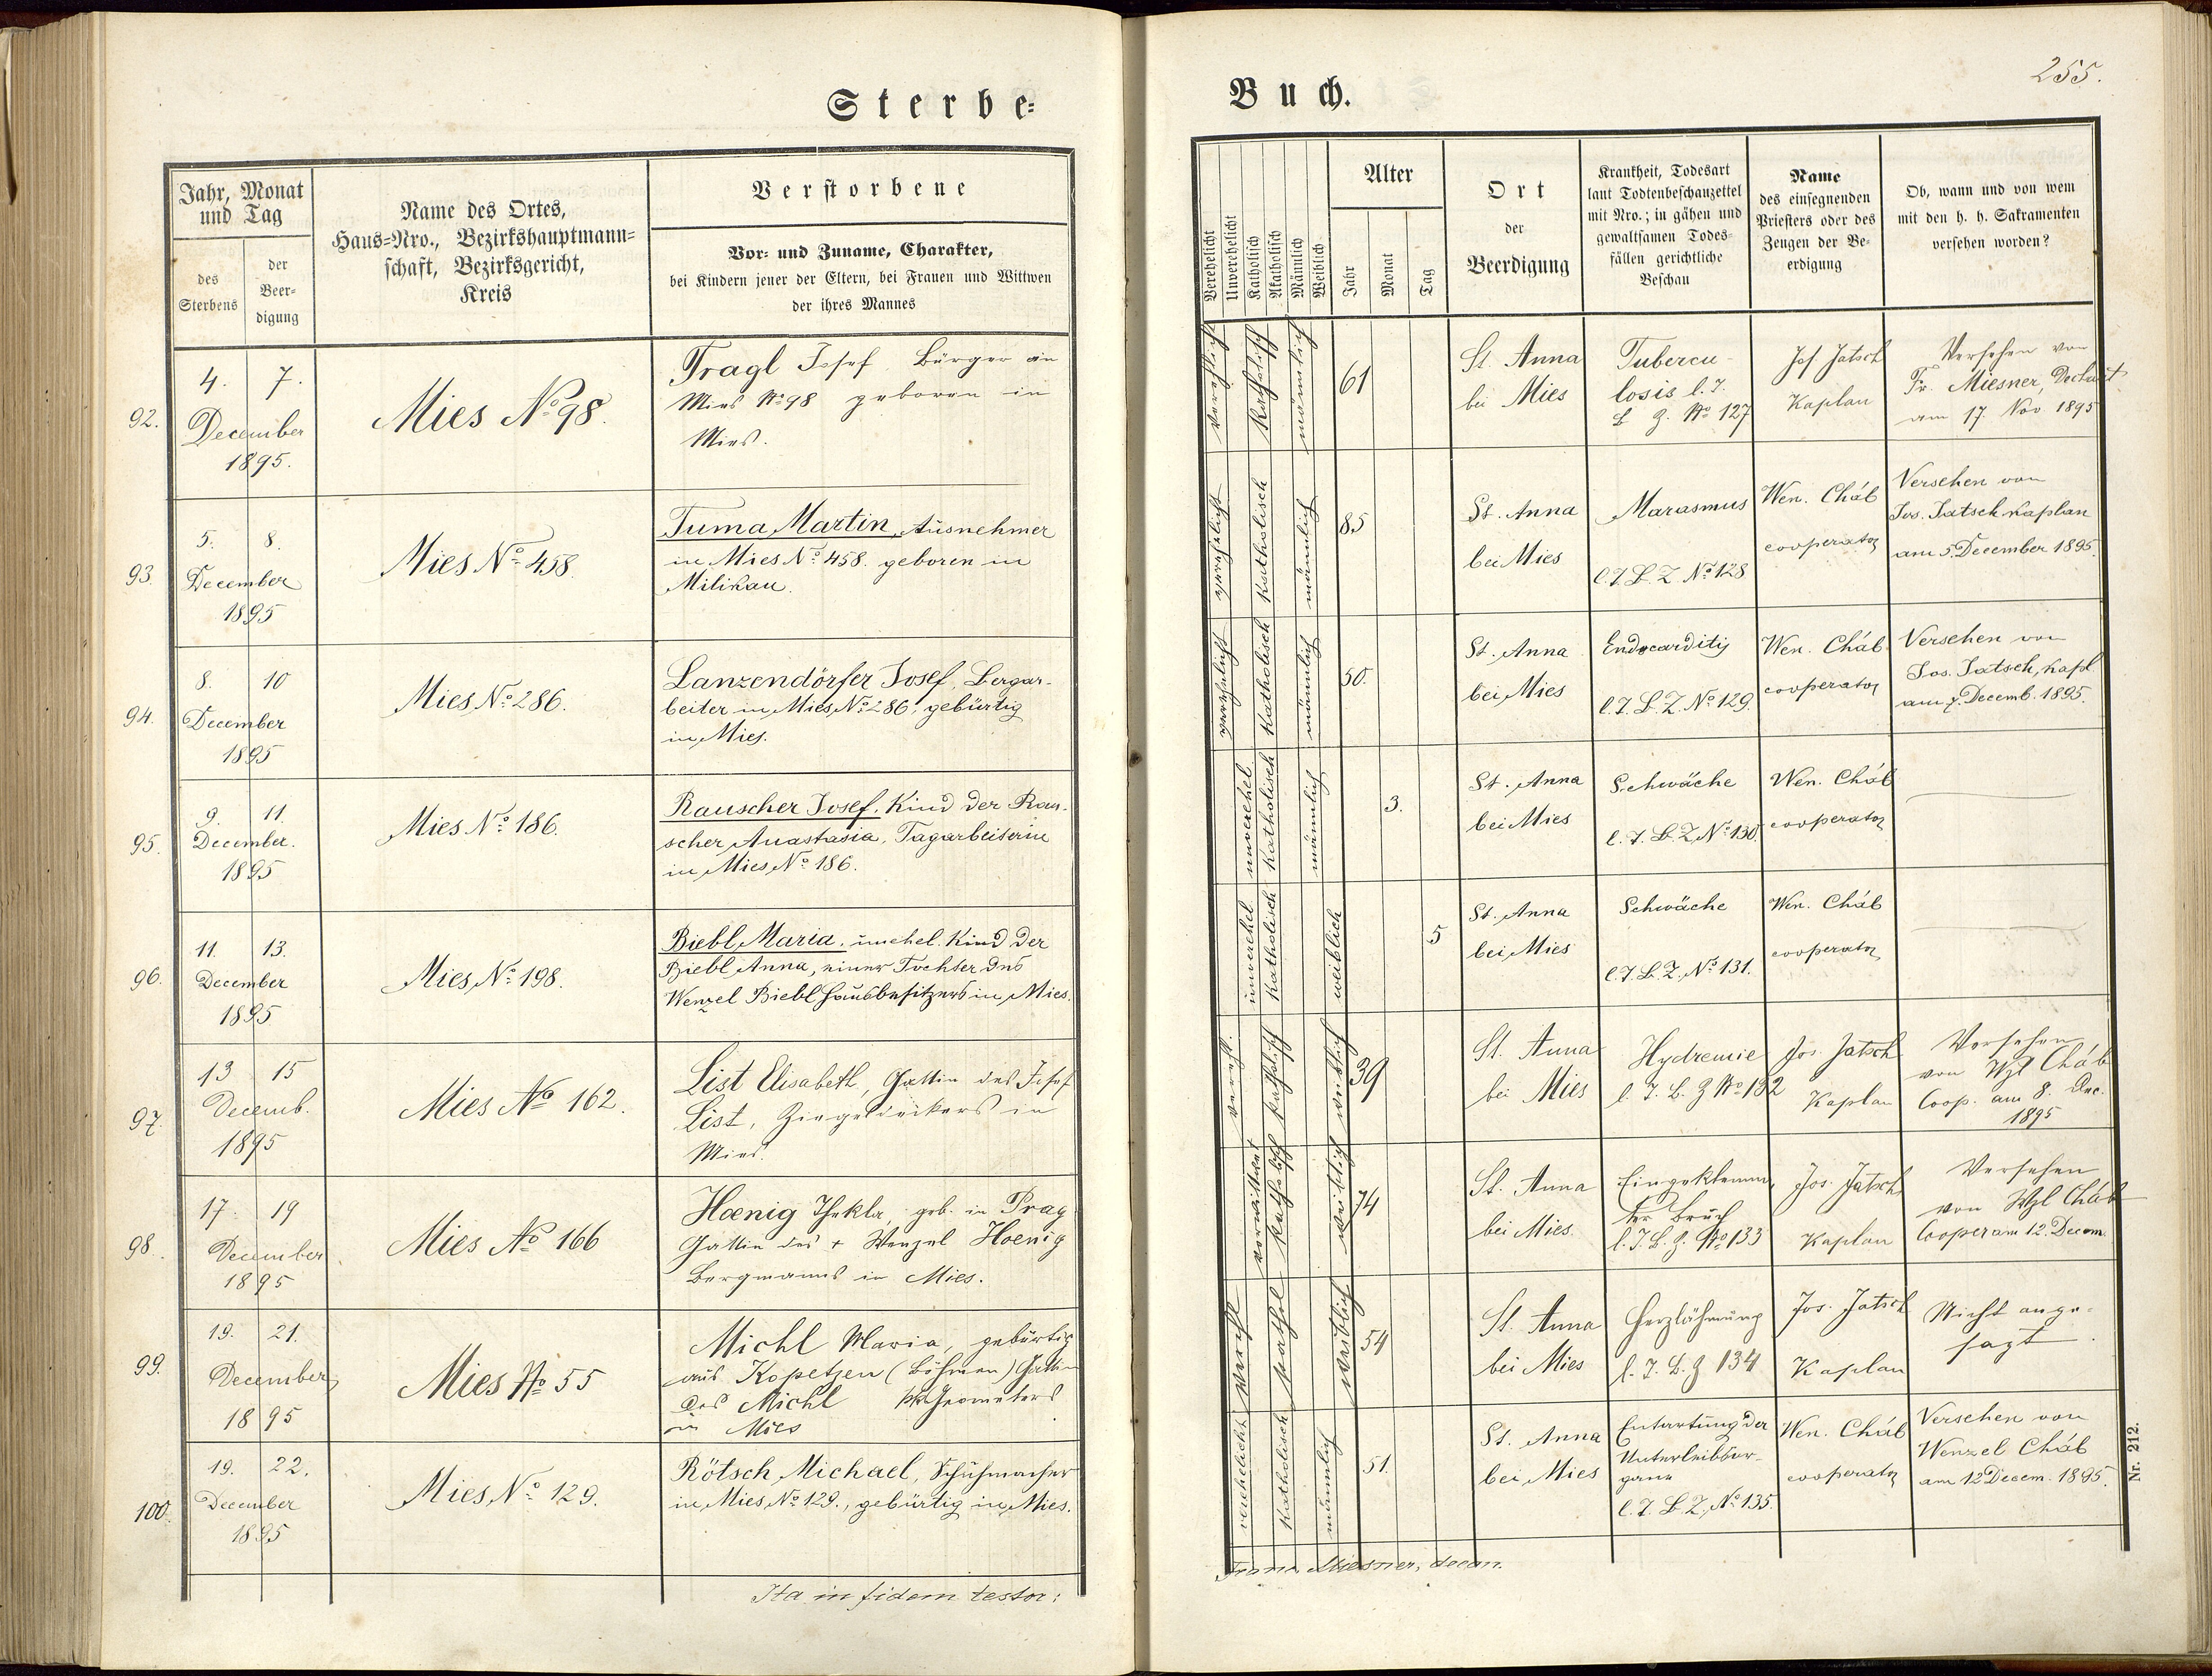 Sterbe=
Jahr, Monat
und Tag
des
Sterbens
der
Beer=
digung
Name des Ortes,
Haus=Nro., Bezirkshauptmann=
schaft, Bezirksgericht,
Kreis
Verstorbene
Vor= und Zuname, Charakter,
bei Kindern jener der Eltern, bei Frauen und Wittwen
der ihres Mannes
92.
4. 7.
December
1895.
Mies No 98.
Tragl Josef, Bürger in
Mies No 98 geboren in
Mies.
93.
5. 8.
December
1895
Mies No 458.
Tuma Martin, Ausnehmer
in Mies No 458. geboren in
Milikau.
94.
8. 10
December
1895
Mies No 286.
Lanzendörfer Josef, Bergar-
beiter in Mies No 286, gebürtig
in Mies.
95.
9. 11.
December.
1895
Mies No 186.
Rauscher Josef, Kind der Rau-
scher Anastasia, Tagarbeiterin
in Mies No 186.
96.
11. 13.
December
1895
Mies No 198.
Biebl Maria, unehel. Kind der
Biebl Anna, einer Tochter des
Wenzel Biebl Hausbesitzers in Mies.
97.
13 15
Decemb.
1895
Mies No 162.
List Elisabeth, Gattin des Josef
List, Ziegeldeckers in
Mies.
98.
17. 19
December
1895
Mies No 166
Hoenig Thekla, geb. in Prag
Gattin des + Wenzel Hoenig
Bergmanns in Mies.
99.
19. 21.
December
1895
Mies No 55
Michl Maria, gebürtig
aus Kopetzen (Böhmen) Gattin
des Michl Geometers
in Mies
100.
19. 22.
December
1895
Mies No 129.
Rötsch Michael, Schuhmacher
in Mies No 129., gebürtig in Mies.
Ita in fidem testor:
Buch.
255.
Verehelicht
Unverehelicht
Katholisch
Akatholisch
Männlich
Weiblich
Alter
Jahr
Monat
Tag
Ort
der
Beerdigung
Krankheit, Todesart
laut Todtenbeschauzettel
mit Nro.; in gähen und
gewaltsamen Todes=
fällen gerichtliche
Beschau
Name
des einsegnenden
Priesters oder des
Zeugen der Be=
erdigung
Ob, wann und von wem
mit den h. h. Sakramenten
versehen worden?
verehelicht
Katholisch
männlich
61
St. Anna
bei Mies
Tubercu-
losis l. T.
B. Z. No 127
Jos. Jatsch
Kaplan
Versehen von
Fr. Miesner, Dechant
am 17. Nov 1895
verehelicht
Katholisch
männlich
85
St. Anna
bei Mies
Marasmus
l. T. B. Z. No 128
Wen. Cháb
cooperator
Versehen von
Jos. Jatsch Kaplan
am 5. December 1895.
verehelicht
Katholisch
männlich
50.
St. Anna
bei Mies
Endocarditis
l. T. B. Z. No 129.
Wen. Cháb
cooperator
Versehen von
Jos. Jatsch, Kapl.
am 7. Decemb. 1895.
unverehel
Katholisch
männlich
3.
St. Anna
bei Mies
Schwäche
l. T. B. Z. No 130.
Wen. Cháb
cooperator
unverehel
Katholisch
weiblich
5
St. Anna
bei Mies
Schwäche
l. T. B. Z. No 131.
Wen. Cháb
cooperator
verehl.
Katholisch
weiblich
39
St. Anna
bei Mies
Hydremie
l. T. B. Z No 132
Jos. Jatsch
Kaplan
Versehen
von Wzl Cháb
Coop. am 8. Dec.
1895
verwittwet
Katholisch
weiblich
74
St. Anna
bei Mies.
Eingeklemm-
ter Bruch
l. T. B. Z. No 133
Jos. Jatsch
Kaplan
Versehen
von Wzl Cháb
Cooper am 12. Decem.
verehl
Kathol
weiblich
54
St. Anna
bei Mies
Herzlähmung
l. T. B. Z 134
Jos. Jatsch
Kaplan
Nicht ange-
sagt.
verehelicht
Katholisch
männlich
51.
St. Anna
bei Mies
Entartung der
Unterleibsor-
gane
l. T. B. Z. No 135.
Wen. Cháb
cooperator
Versehen von
Wenzel Cháb
am 12 Decem. 1895.
Franz Miesner, decan.
Nr. 212.